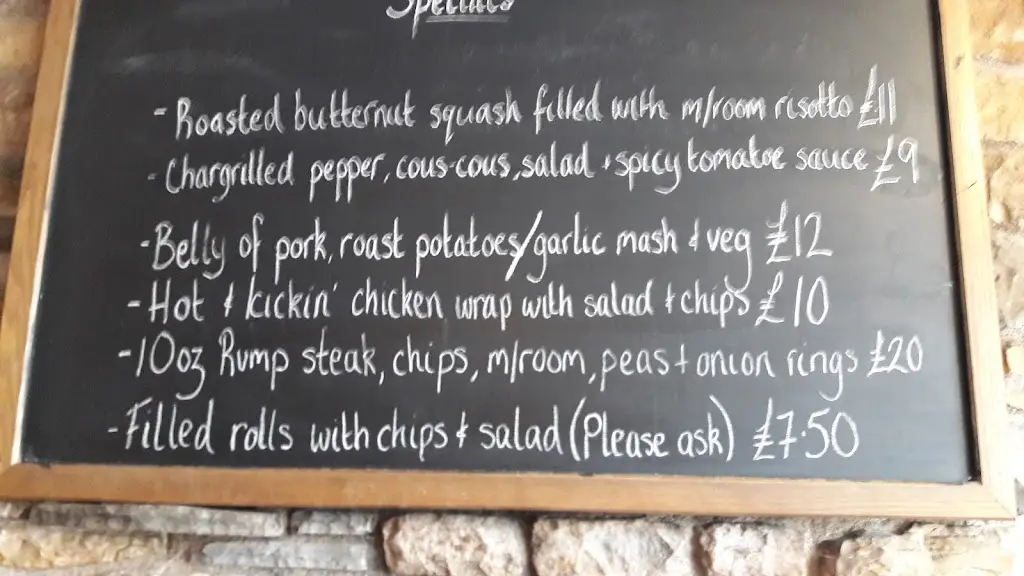 Specials
- Roasted butternut squash filled with m/room risotto £11
- Chargrilled pepper, cous-cous, salad + spicy tomatoe sauce £9
- Belly of pork, roast potatoes/garlic mash & veg £12
- Hot & kickin' chicken wrap with salad & chips £10
- 10oz Rump steak, chips, m/room, peas + onion rings £20
- Filled rolls with chips & salad (Please ask) £7.50